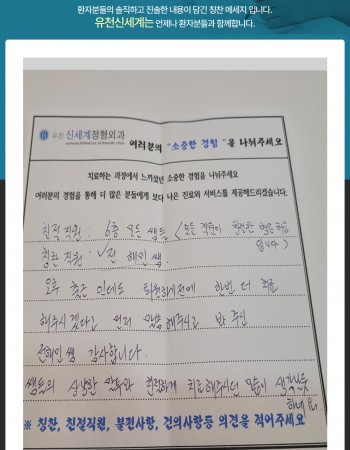 환자분들의 솔직하고 진솔한 내용이 담긴 칭찬 메세지 입니다.
유천신세계는 언제나 환자분들과 함께합니다.
유천 신세계정형외과 여러분의 "소중한 경험"을 나눠주세요
치료하는 과정에서 느끼셨던 소중한 경험을 나눠주세요
여러분의 경험을 통해 더 많은 분들에게 보다 나은 진료와 서비스를 제공해드리겠습니다.
친절직원: 6층 모든 쌤들 (모든 직원이 친절한 병원 처음
입니다)
칭찬직원: 전해인 쌤.
오후 늦은 인데도 퇴원하기전에 한번 더 치료
해주시겠다고 먼저 말씀해주시고 봐 주신
전해인쌤 감사합니다.
쌤들의 상냥한 말투와 친절하게 치료해주시던 모습이 생각날듯
하네요
※ 칭찬, 친절직원, 불편사항, 건의사항등 의견을 적어주세요